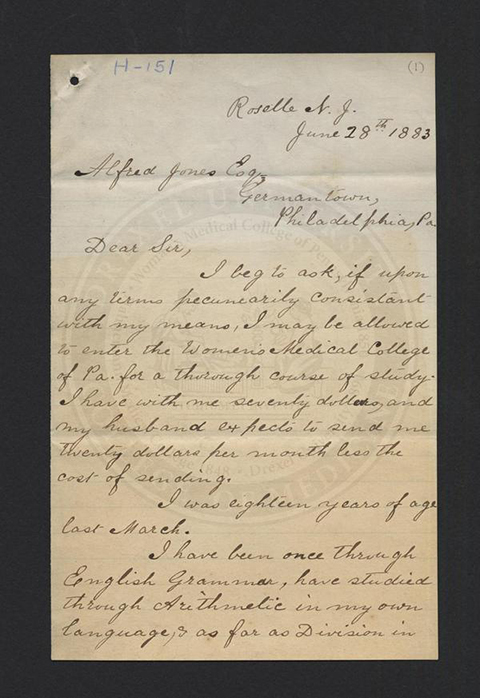 H-151
(1)
Roselle N. J.
June 28th 1883
Alfred Jones Esq,
Germantown,
Philadelphia, Pa
Dear Sir,
I beg to ask, if upon
any terms pecunearily consistant
with my means, I may be allowed
to enter the Womens Medical College
of Pa. for a thorough course of study.
I have with me seventy dollars, and
my husband expects to send me
twenty dollars per month less the
cost of sending.
I was eighteen years of age
last March.
I have been once through
English Grammar, have studied
through Arithmetic in my own
language, & as far as Division in